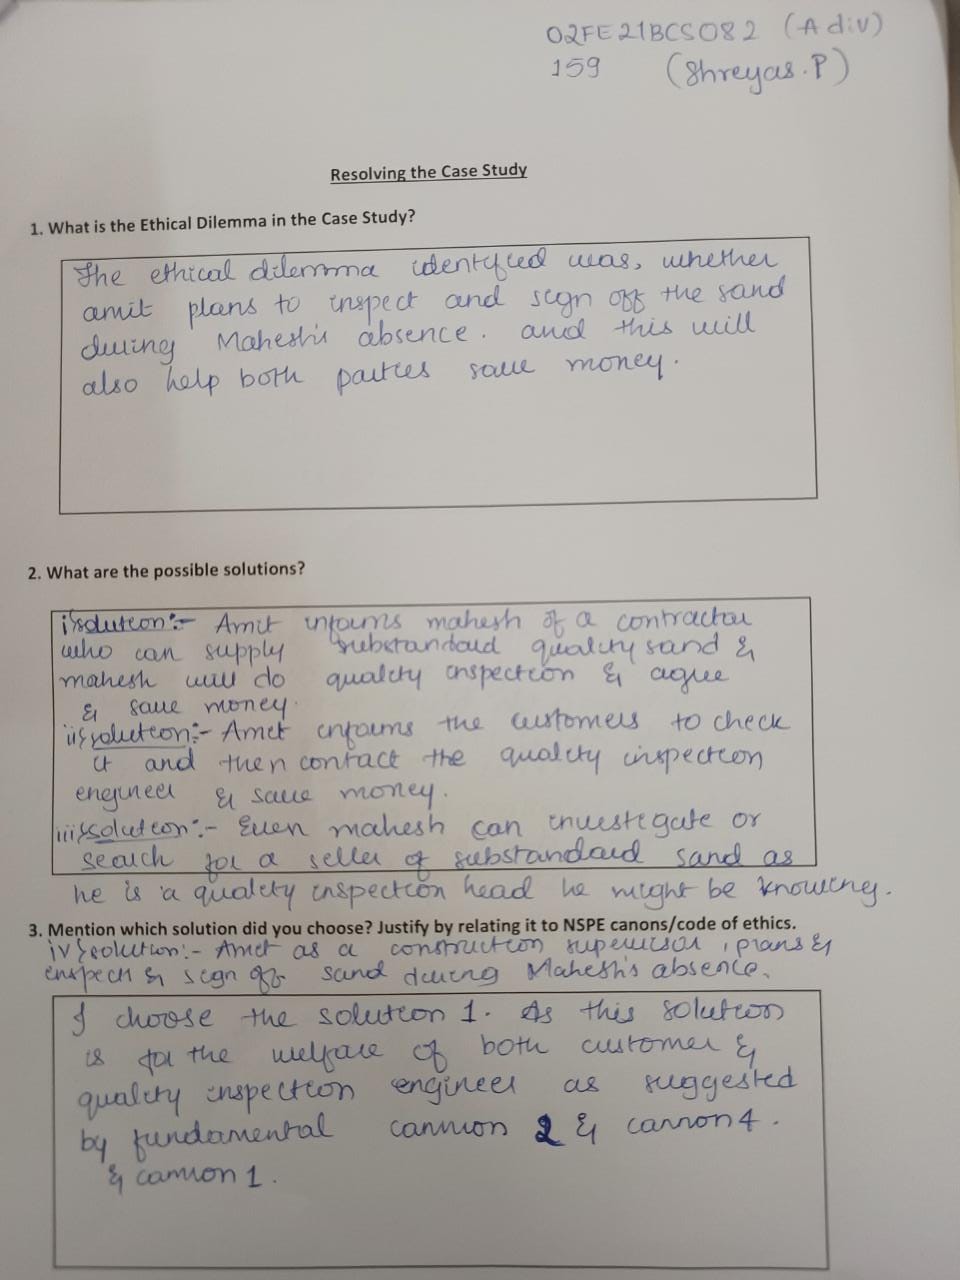 02FE21BCS082 (A div)
159 (Shreyas.P)
Resolving the Case Study
1. What is the Ethical Dilemma in the Case Study?
The ethical dilemma identified was, whether
amit plans to inspect and sign off the sand
during Mahesh's absence. and this will
also help both parties save money.
2. What are the possible solutions?
i} solution:- Amit informs mahesh of a contractor
who can supply substandard quality sand &
mahesh will do quality inspection & agree
& save money.
ii} solution:- Amit informs the customers to check
it and then contact the quality inspection
engineer & save money.
iii} solution:- Even mahesh can investigate or
search for a seller of substandard sand as
he is a quality inspection head he might be knowing.
3. Mention which solution did you choose? Justify by relating it to NSPE canons/code of ethics.
iv} solution:- Amit as a construction supervisor, plans &
inspects & sign off sand during Mahesh's absence.
I choose the solution 1. As this solution
is for the welfare of both customer &
quality inspection engineer as suggested
by fundamental cannon 2 & cannon 4.
& cannon 1.